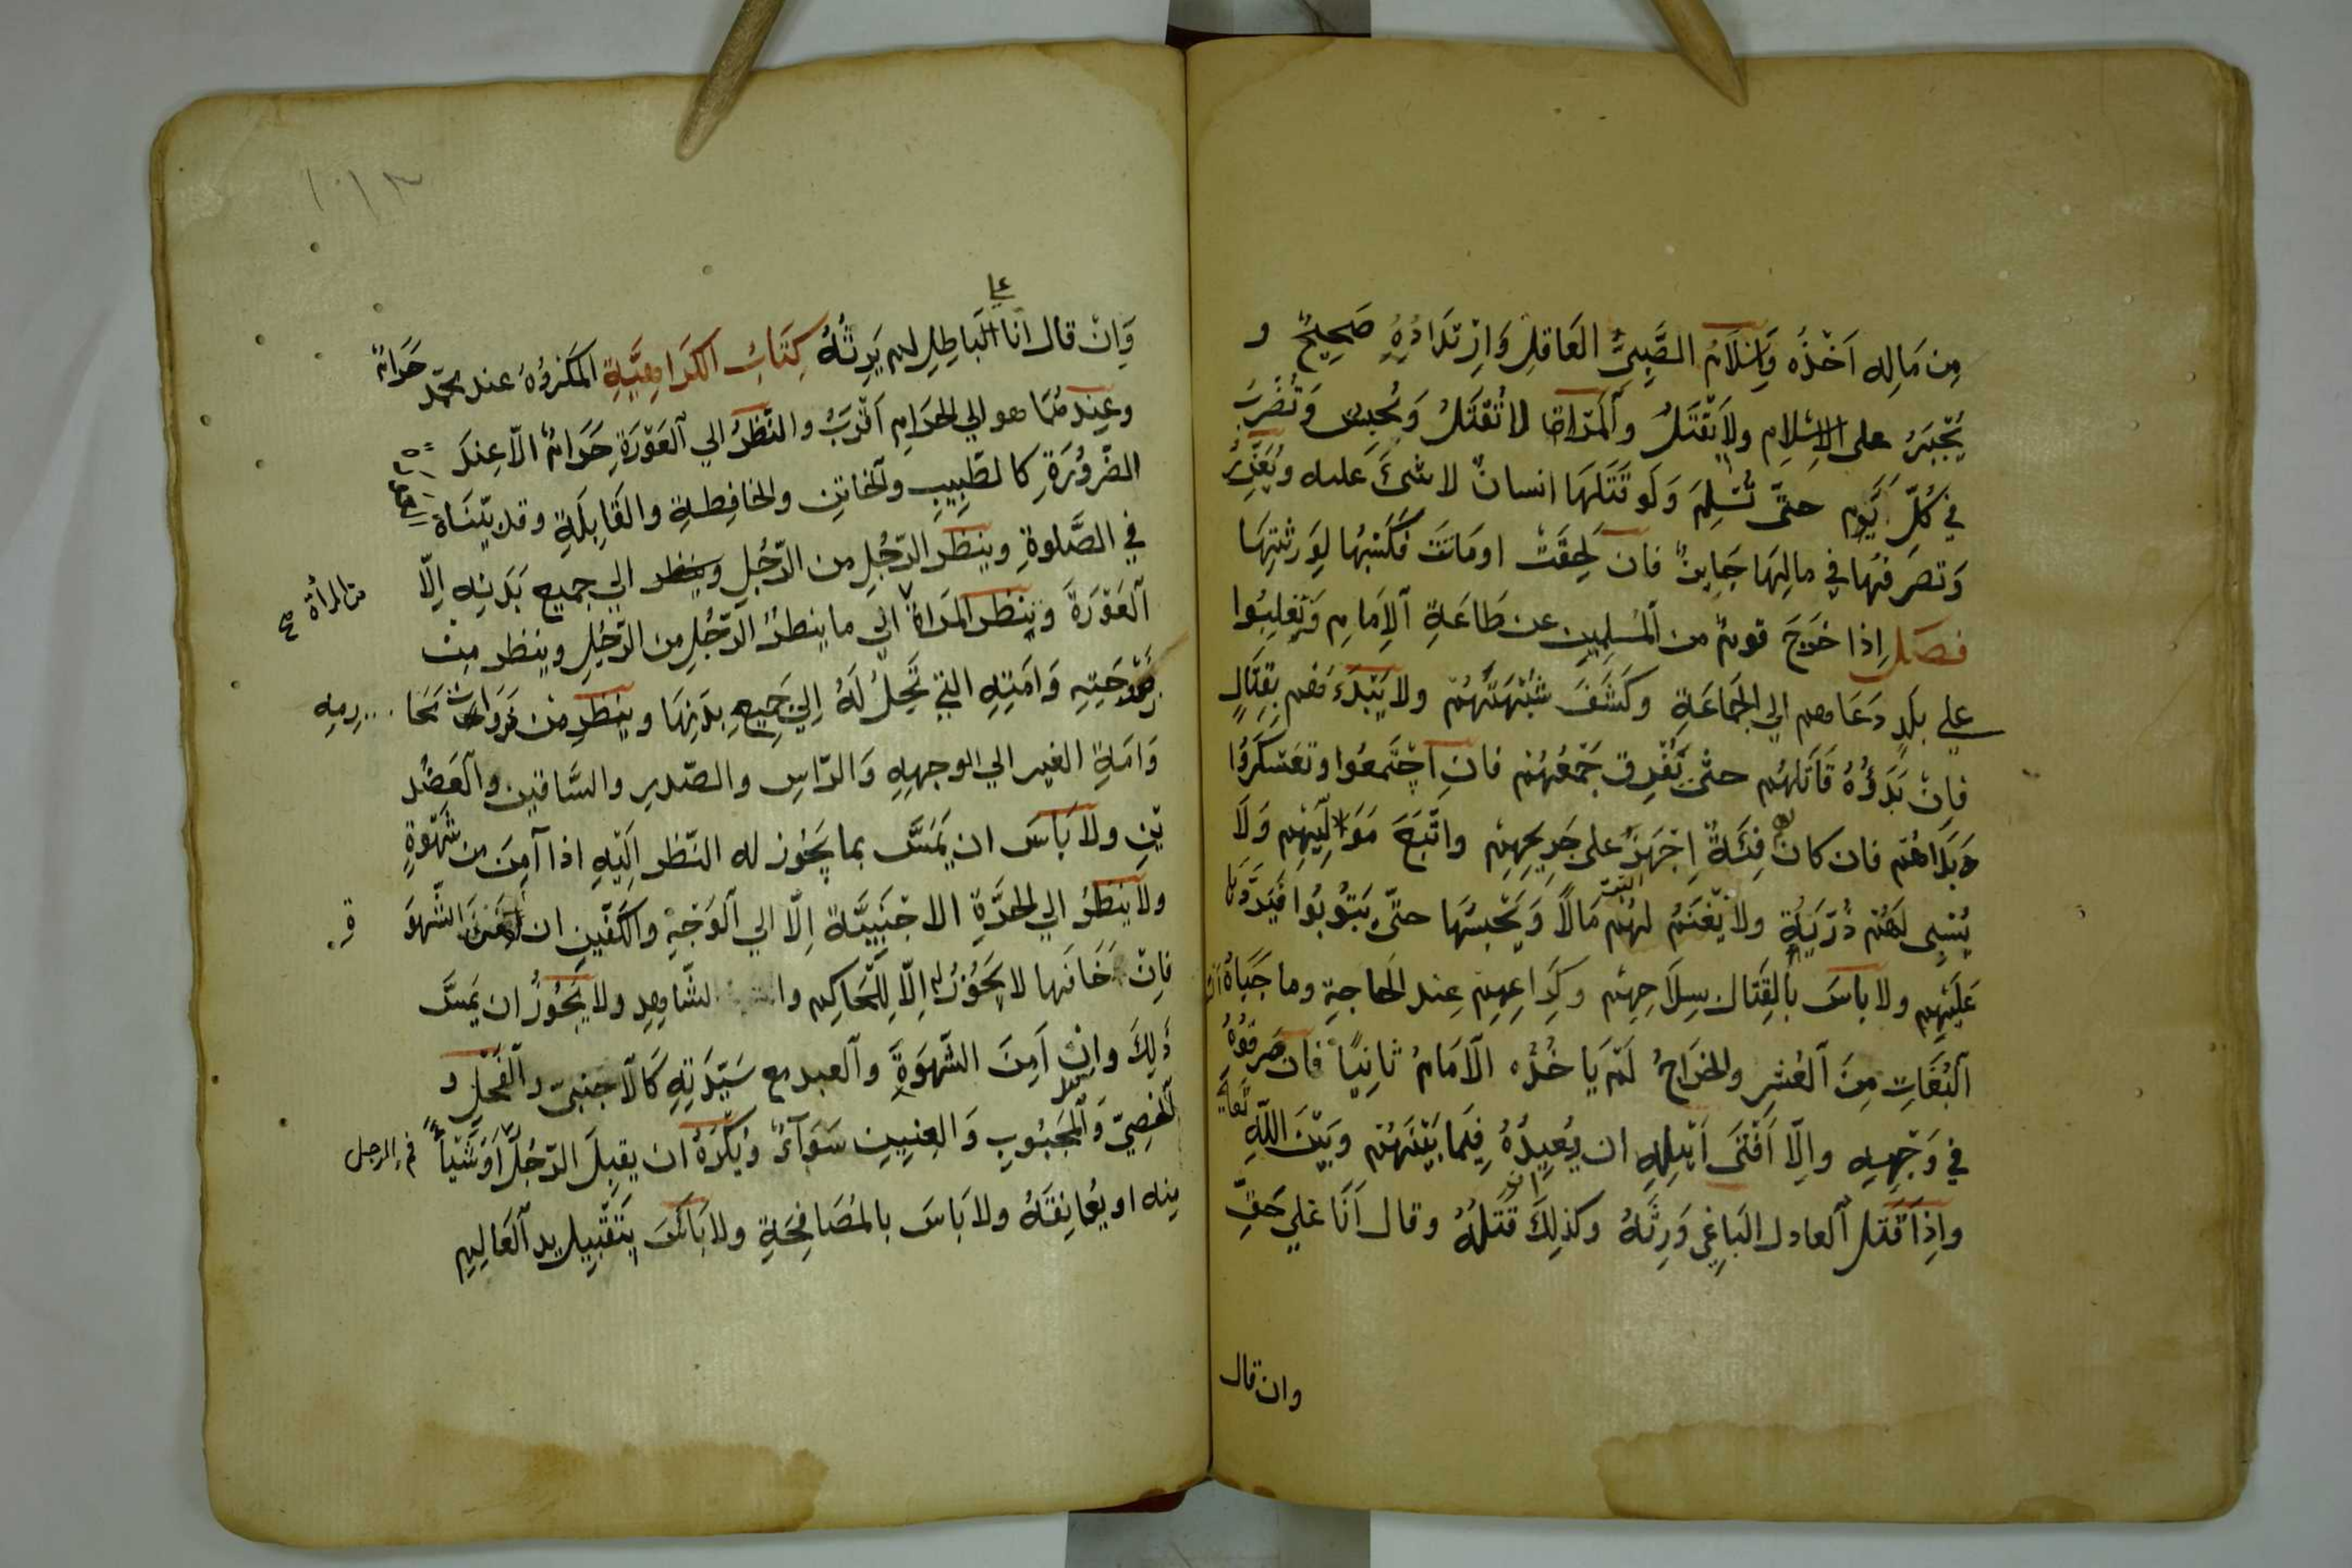 مِن مَالِه اَخْذُه وَاِسْلَامُ الصَّبِىُّ العَاقلِ وَاِرْتدَادُهُ صَحِيحٌ و
يُجْبَرُ على الاِسْلامِ ولا يُقْتَلُ والمَرْاة لا تُقْتَلُ وَتُحبس وَتُضْرَبُ
فى كُلِّ يَوم حتّى تُسْلِمَ وَلَو قَتَلَهَا انسانٌ لا شئَ عليه ويُعَزِّرُ
وَتصَرفُهَا فى مالِهَا جَايزٌ فان لَحِقَتْ او مَاتَتْ فَكَسْبُهَا لِوَرثتِهَا
فصَل اِذا خَرَجَ قومٌ من المُسْلِمين عن طَاعَةِ الاِمَامِ وَتَغلبُوا
على بلَدٍ دَعَاهم الى الجَمَاعَةِ وكَشَفَ شُبْهَتَهُمْ ولا يَبْدَءهم بِقتَالٍ
فاِنْ بَدَؤُهُ قَاتَلهُم حتّى يُفَرِق جَمْعهُمْ فانِ اجْتَمعُوا وتعَسْكَرُوا
بَدَاهُم فان كان لهم فِئَةٌ اِجْهَزَ على جَرِيحِهِمْ واتّبَعَ مَوَلِّيَهِمْ وَلَا
يُسْبِى لَهُمْ ذُرّيَةٍ ولا يُغْنَمُ لهُمْ مَالًا وَيَحْبسُهَا حتّى يَتُوبُوا فَيَرُدَّهَا
عَلَيْهِم ولا باسَ بالقِتَال بسِلَاحِهِمْ وكَرَاعِهِم عِند الحَاجةِ وما جَبَاهُ
البُغَاتِ مِنَ العُشرِ والخرَاجُ لَمْ يَاخُذُه الاَمَامُ ثانِيًا فان صَرفُوْهُ
فى وَجْهِهِ واِلّا اَفْتَى اَهْلِهِ ان يُعِيدُهُ فِيمَا بَيْنَهُمْ وبَيْنَ اللهِ تعالى
واِذَا قَتل العادل البَاغِى وَرِثَهُ وكذلِكَ قَتلهُ وقال اَنَا عَلى حَقٍّ
وان قال
وَانْ قال انا على البَاطِلِ لم يَرِثُهُ كِتَابُ الكَرَاهِيَّةِ المَكْرُوْهُ عند محمّد حَرَامٌ
وعِنْدهُمَا هو الى الحَرَامِ اَقْرَبُ والنّظَرُ الى العَوْرَةِ حَرَامٌ الّا عِندَ
الضّرُورَةِ كالطّبِيبِ والخاتِن والخافِظةِ والقَابِلَةِ وقد بيّنَاهُ
فى الصَّلوةِ وينظر الرّجُلِ من الرّجُلِ وينظر الى جميع بَدَنِهِ اِلّا
العَوْرَةَ وينظر المَراة الى ما ينطرُ الرّجُلِ من الرّجُلِ وينظر مِن
من المرأة صح
زَوْجَتِهِ وَامَتِهِ التى تَحِلُ لَهُ اِلى جَمِيعِ بدَنِهَا وينظر من ذوات مَحَا
رمِهِ
وَامَةِ الغير الى الوجهِهِ وَالرّاسِ والصّدرِ والسّاقين والعَضُد
يْنِ ولا بَاسَ ان يَمَسَّ بما يَجُوز له النّظر اِلَيْهِ اذا اَمِنَ من شَهْوةٍ
ولا يَنظُرُ الى الحَرَّةِ الاجْنَبِيَّة اِلّا الى الوَجْهِ والكَفّينِ ان اَمَنَ الشّهوَ
فاِنْ خَافَها لا يَجُوْزُ له اِلّا لِلحَاكِم والشّاهِدِ ولا يَجُوزُ ان يَمَسَّ
ذَلِكَ واِن اَمِنَ الشّهوَةَ والعبد مع سَيّدَتِهِ كَالاجنبىّ والفَحْلِ و
الخصِىّ وَالمجَبُوبِ وَالعِنِينِ سَوَآءٌ وَيُكْرَهُ ان يقبلَ الرّجُل اَوْ شَيْأً
فم الرجل
مِنه او يُعَانِقَهُ ولا بَاسَ بالمُصَافِحَةِ ولا بَاسَ بِتَقْبِيلِ يد العَالِمِ